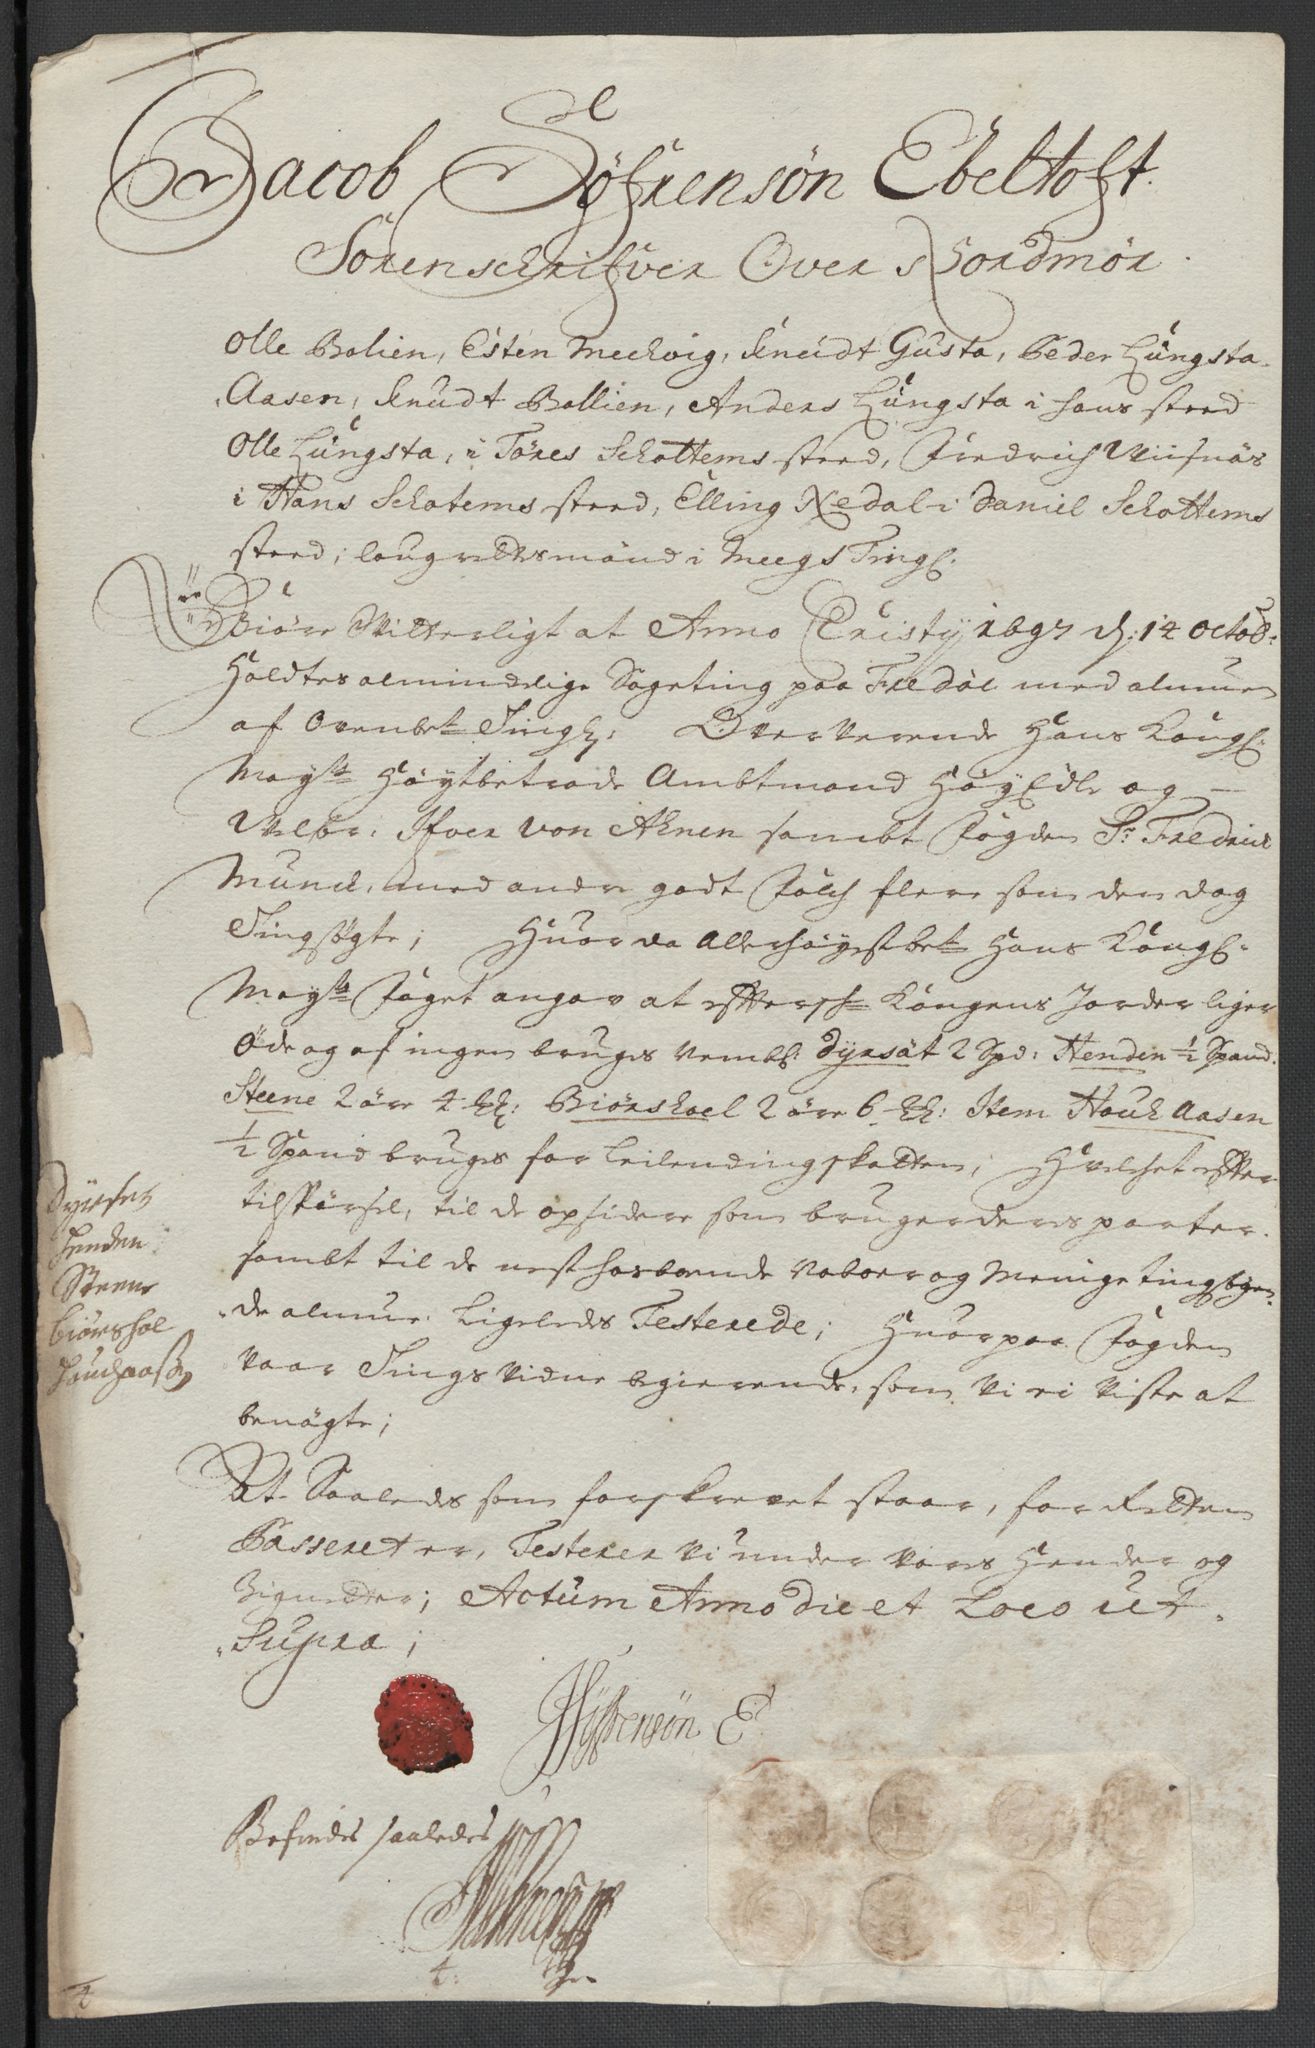 Jacob Söfrensön Ebeltoft.
Sorenschrifver Over Nordmör.
Olle Bolien, Esten Meelvig, Knudt Gusta, Peder Lüngsta-
Aasen, Knudt Bollien, Anders Lüngsta i hans sted
Olle Lüngsta, i Töres Schottems sted, Fredrich Viisnäs
i Hans Schotems sted, Elling Nedal i Daniel Schottems
sted; laugrettesmänd i Meegs Tingl:
Giöre Vitterligt at Anno Christy 1697 d: 14 octob:
Holdtes almindelige Sageting paa Fredöe med almuen
af Ovenbete Tingl: Oververende Hans Kongl:
Mayts Höytbetrode Ambtmand HöyEdle og
Velbr: Ifver von Ahnen sambt fogden Sr Fredrich
Munch, med andre godt folch flere som den dag
Tingsögte; Huor da Allerhöyestbete Hans Kongl:
Mayts foget angav at effterschne Kongens Jorder liger
Öde og af ingen bruges nembl: Dyrsät 2 Spd: Henden ½ Spand
Steene 2 öre 4 mk: Biörskoel 2 öre 6 mk: Item Houk Aasen
½ Spand bruges for Leilendingskatten; Hvilchet effter
tilspörsel, til de opsidere som bruger deris parter
sambt til de nesthosboende naboer og Meenige tingsögen-
de almue Ligeledes Testerede; Huorpaa fogden
vaar Tingsvidne begierende, som Vi ei Viste at
benögte;
At Saaledes som forskrevet staar, for Retten
Passeret er, Testerer Vi under Vores Hender og
Zignetter; Actum Anno die et Loco ut
Supra;
JSöfrensön E
Befindes saaledes
Dyrset
Henden
Steene
Biörshol
Houchaasen